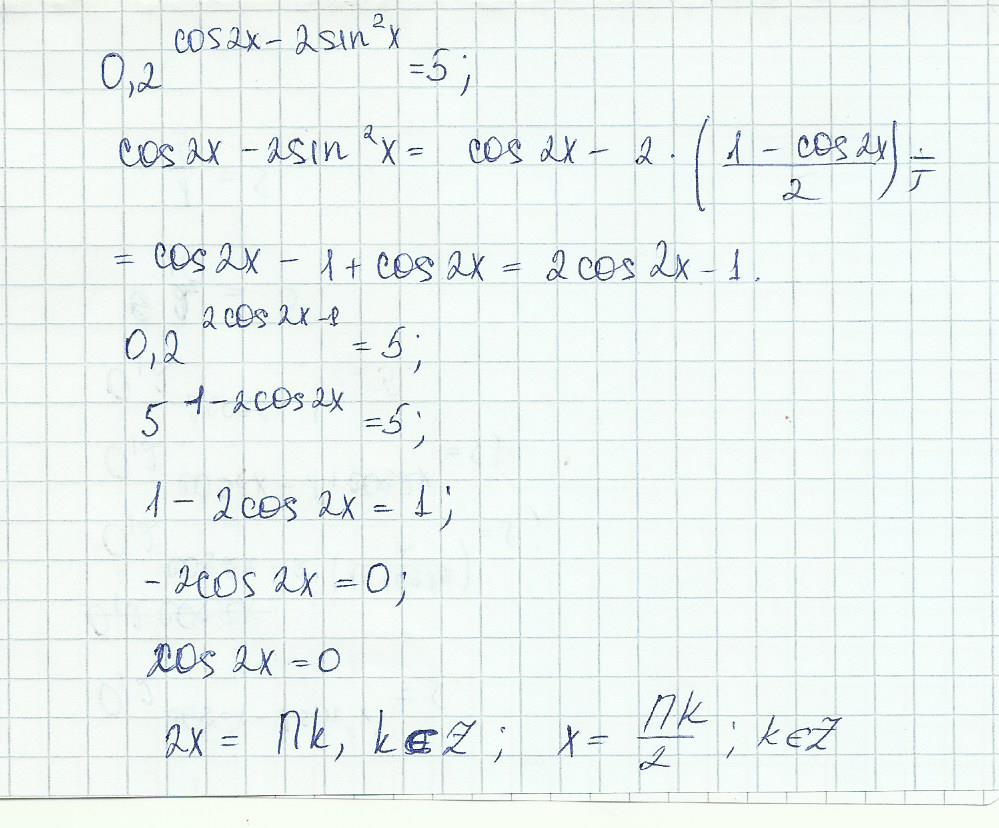 0,2^(cos2x-2sin²x) = 5;
cos2x - 2sin²x = cos2x - 2·((1 - cos2x)/2) =
= cos2x - 1 + cos2x = 2cos2x - 1.
0,2^(2cos2x-1) = 5;
5^(1-2cos2x) = 5;
1 - 2cos2x = 1;
-2cos2x = 0;
cos2x = 0
2x = Πk, k∈Z; x = Πk/2; k∈Z